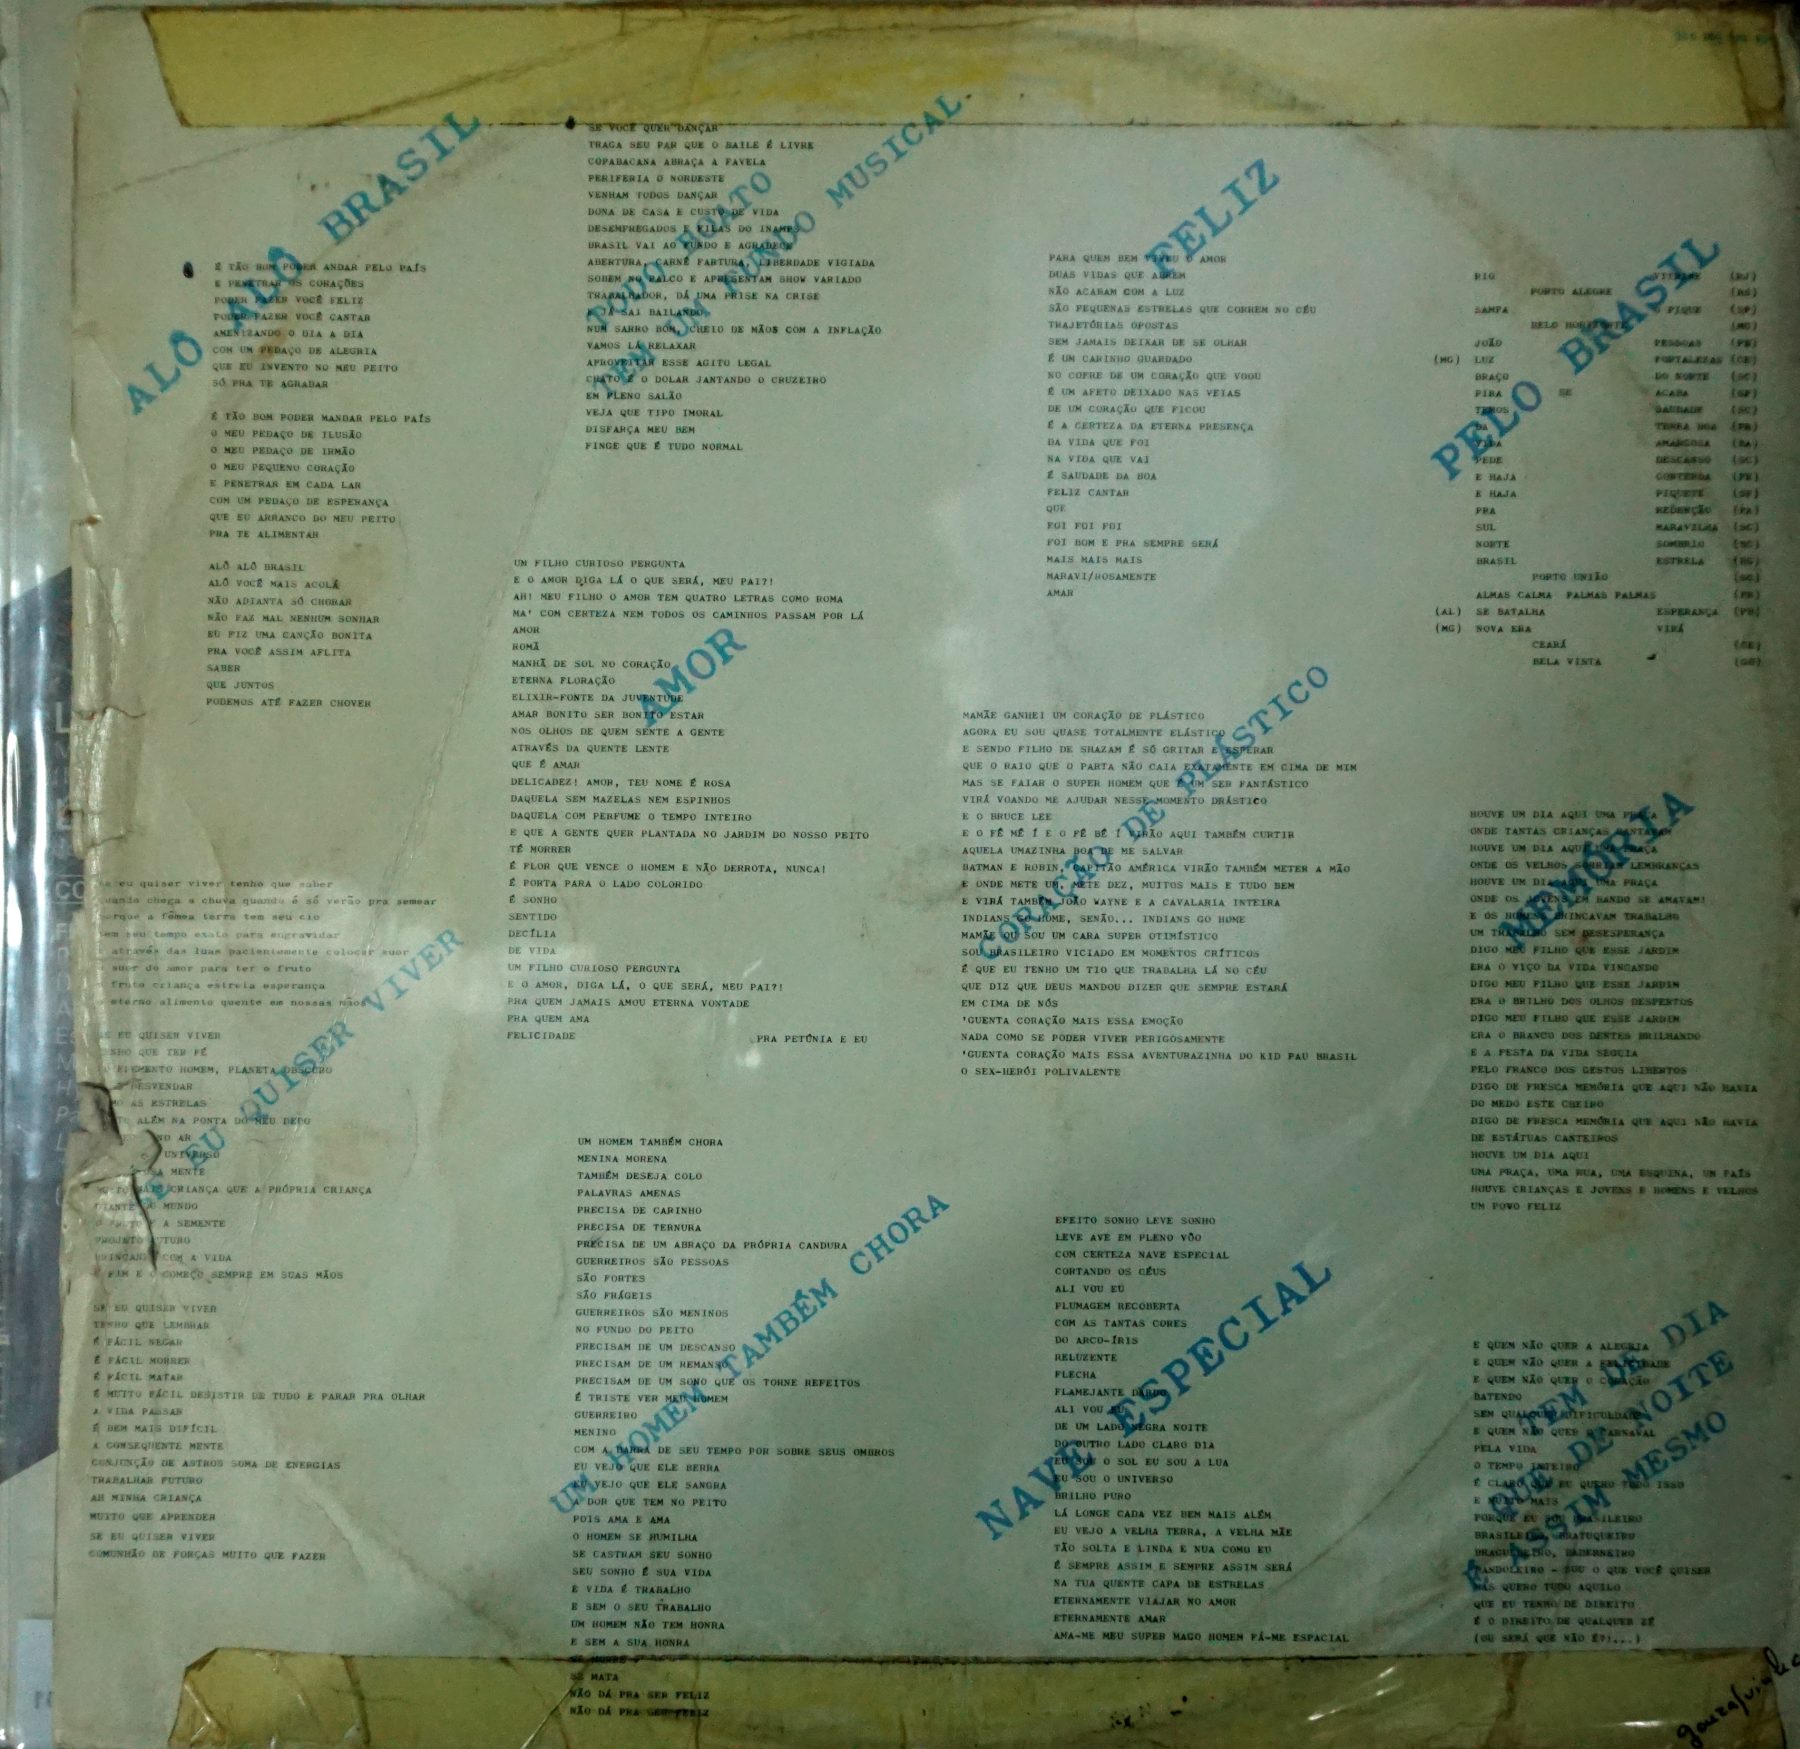 ALÔ ALÔ BRASIL
É TÃO BOM PODER ANDAR PELO PAÍS
E PENETRAR OS CORAÇÕES
PODER FAZER VOCÊ FELIZ
PODER FAZER VOCÊ CANTAR
AMENIZANDO O DIA A DIA
COM UM PEDAÇO DE ALEGRIA
QUE EU INVENTO NO MEU PEITO
SÓ PRA TE AGRADAR
É TÃO BOM PODER MANDAR PELO PAÍS
O MEU PEDAÇO DE ILUSÃO
O MEU PEDAÇO DE IRMÃO
O MEU PEQUENO CORAÇÃO
E PENETRAR EM CADA LAR
COM UM PEDAÇO DE ESPERANÇA
QUE EU ARRANCO DO MEU PEITO
PRA TE ALIMENTAR
ALÔ ALÔ BRASIL
ALÔ VOCÊ MAIS ACOLÁ
NÃO ADIANTA SÓ CHORAR
NÃO FAZ MAL NENHUM SONHAR
EU FIZ UMA CANÇÃO BONITA
PRA VOCÊ ASSIM AFLITA
SABER
QUE JUNTOS
PODEMOS ATÉ FAZER CHOVER
SE EU QUISER VIVER
eu quiser viver tenho que saber
chega a chuva quando é só verão pra semear
a fêmea terra tem seu cio
seu tempo exato para engravidar
através das luas pacientemente colocar suor
suor do amor para ter o fruto
fruto criança estrela esperança
eterno alimento quente em nossas mãos
SE EU QUISER VIVER
TENHO QUE TER FÉ
ELEMENTO HOMEM, PLANETA OBSCURO
DESVENDAR
AS ESTRELAS
ALÉM NA PONTA DO MEU DEDO
NO AR
UNIVERSO
MENTE
MAIS CRIANÇA QUE A PRÓPRIA CRIANÇA
DIANTE DO MUNDO
O FRUTO E A SEMENTE
PROJETO FUTURO
BRINCANDO COM A VIDA
O FIM E O COMEÇO SEMPRE EM SUAS MÃOS
SE EU QUISER VIVER
TENHO QUE LEMBRAR
É FÁCIL NEGAR
É FÁCIL MORRER
É FÁCIL MATAR
É MUITO FÁCIL DESISTIR DE TUDO E PARAR PRA OLHAR
A VIDA PASSAR
É BEM MAIS DIFÍCIL
A CONSEQUENTE MENTE
CONJUNÇÃO DE ASTROS SOMA DE ENERGIAS
TRABALHAR FUTURO
AH MINHA CRIANÇA
MUITO QUE APRENDER
SE EU QUISER VIVER
COMUNHÃO DE FORÇAS MUITO QUE FAZER
TODO BOATO
TEM UM FUNDO MUSICAL
SE VOCÊ QUER DANÇAR
TRAGA SEU PAR QUE O BAILE É LIVRE
COPABACANA ABRAÇA A FAVELA
PERIFERIA O NORDESTE
VENHAM TODOS DANÇAR
DONA DE CASA E CUSTO DE VIDA
DESEMPREGADOS E FILAS DO INAMPS
BRASIL VAI AO FUNDO E AGRADECE
ABERTURA, CARNÊ FARTURA, LIBERDADE VIGIADA
SOBEM NO PALCO E APRESENTAM SHOW VARIADO
TRABALHADOR, DÁ UMA PRISE NA CRISE
E JÁ SAI BAILANDO
NUM SARRO BOM, CHEIO DE MÃOS COM A INFLAÇÃO
VAMOS LÁ RELAXAR
APROVEITAR ESSE AGITO LEGAL
CHATO É O DOLAR JANTANDO O CRUZEIRO
EM PLENO SALÃO
VEJA QUE TIPO IMORAL
DISFARÇA MEU BEM
FINGE QUE É TUDO NORMAL
AMOR
UM FILHO CURIOSO PERGUNTA
E O AMOR DIGA LÁ O QUE SERÁ, MEU PAI?!
AH! MEU FILHO O AMOR TEM QUATRO LETRAS COMO ROMA
MA' COM CERTEZA NEM TODOS OS CAMINHOS PASSAM POR LÁ
AMOR
ROMÃ
MANHÃ DE SOL NO CORAÇÃO
ETERNA FLORAÇÃO
ELIXIR-FONTE DA JUVENTUDE
AMAR BONITO SER BONITO ESTAR
NOS OLHOS DE QUEM SENTE A GENTE
ATRAVÉS DA QUENTE LENTE
QUE É AMAR
DELICADEZ! AMOR, TEU NOME É ROSA
DAQUELA SEM MAZELAS NEM ESPINHOS
DAQUELA COM PERFUME O TEMPO INTEIRO
E QUE A GENTE QUER PLANTADA NO JARDIM DO NOSSO PEITO
TÉ MORRER
É FLOR QUE VENCE O HOMEM E NÃO DERROTA, NUNCA!
É PORTA PARA O LADO COLORIDO
É SONHO
SENTIDO
DECÍLIA
DE VIDA
UM FILHO CURIOSO PERGUNTA
E O AMOR, DIGA LÁ, O QUE SERÁ, MEU PAI?!
PRA QUEM JAMAIS AMOU ETERNA VONTADE
PRA QUEM AMA
FELICIDADE PRA PETÚNIA E EU
UM HOMEM TAMBÉM CHORA
UM HOMEM TAMBÉM CHORA
MENINA MORENA
TAMBÉM DESEJA COLO
PALAVRAS AMENAS
PRECISA DE CARINHO
PRECISA DE TERNURA
PRECISA DE UM ABRAÇO DA PRÓPRIA CANDURA
GUERREIROS SÃO PESSOAS
SÃO FORTES
SÃO FRÁGEIS
GUERREIROS SÃO MENINOS
NO FUNDO DO PEITO
PRECISAM DE UM DESCANSO
PRECISAM DE UM REMANSO
PRECISAM DE UM SONO QUE OS TORNE REFEITOS
É TRISTE VER MEU HOMEM
GUERREIRO
MENINO
COM A BARRA DE SEU TEMPO POR SOBRE SEUS OMBROS
EU VEJO QUE ELE BERRA
EU VEJO QUE ELE SANGRA
A DOR QUE TEM NO PEITO
POIS AMA E AMA
O HOMEM SE HUMILHA
SE CASTRAM SEU SONHO
SEU SONHO É SUA VIDA
E VIDA É TRABALHO
E SEM O SEU TRABALHO
UM HOMEM NÃO TEM HONRA
E SEM A SUA HONRA
SE MORRE
SE MATA
NÃO DÁ PRA SER FELIZ
NÃO DÁ PRA SER FELIZ
FELIZ
PARA QUEM BEM VIVEU O AMOR
DUAS VIDAS QUE ABREM
NÃO ACABAM COM A LUZ
SÃO PEQUENAS ESTRELAS QUE CORREM NO CÉU
TRAJETÓRIAS OPOSTAS
SEM JAMAIS DEIXAR DE SE OLHAR
É UM CARINHO GUARDADO
NO COFRE DE UM CORAÇÃO QUE VOOU
É UM AFETO DEIXADO NAS VEIAS
DE UM CORAÇÃO QUE FICOU
É A CERTEZA DA ETERNA PRESENÇA
DA VIDA QUE FOI
NA VIDA QUE VAI
É SAUDADE DA BOA
FELIZ CANTAR
QUE
FOI FOI FOI
FOI BOM E PRA SEMPRE SERÁ
MAIS MAIS MAIS
MARAVI/ROSAMENTE
AMAR
CORAÇÃO DE PLÁSTICO
MAMÃE GANHEI UM CORAÇÃO DE PLÁSTICO
AGORA EU SOU QUASE TOTALMENTE ELÁSTICO
E SENDO FILHO DE SHAZAM É SÓ GRITAR E ESPERAR
QUE O RAIO QUE O PARTA NÃO CAIA EXATAMENTE EM CIMA DE MIM
MAS SE FAIAR O SUPER HOMEM QUE É UM SER FANTÁSTICO
VIRÁ VOANDO ME AJUDAR NESSE MOMENTO DRÁSTICO
E O BRUCE LEE
E O FÊ MÊ Í E O FÊ BÊ Í VIRÃO AQUI TAMBÉM CURTIR
AQUELA UMAZINHA BOA DE ME SALVAR
BATMAN E ROBIN, CAPITÃO AMÉRICA VIRÃO TAMBÉM METER A MÃO
E ONDE METE UM, METE DEZ, MUITOS MAIS E TUDO BEM
E VIRÁ TAMBÉM JOÃO WAYNE E A CAVALARIA INTEIRA
INDIANS GO HOME, SENÃO... INDIANS GO HOME
MAMÃE QU SOU UM CARA SUPER OTIMÍSTICO
SOU BRASILEIRO VICIADO EM MOMENTOS CRÍTICOS
É QUE EU TENHO UM TIO QUE TRABALHA LÁ NO CÉU
QUE DIZ QUE DEUS MANDOU DIZER QUE SEMPRE ESTARÁ
EM CIMA DE NÓS
'GUENTA CORAÇÃO MAIS ESSA EMOÇÃO
NADA COMO SE PODER VIVER PERIGOSAMENTE
'GUENTA CORAÇÃO MAIS ESSA AVENTURAZINHA DO KID PAU BRASIL
O SEX-HERÓI POLIVALENTE
NAVE ESPECIAL
EFEITO SONHO LEVE SONHO
LEVE AVE EM PLENO VÔO
COM CERTEZA NAVE ESPECIAL
CORTANDO OS CÉUS
ALI VOU EU
PLUMAGEM RECOBERTA
COM AS TANTAS CORES
DO ARCO-ÍRIS
RELUZENTE
FLECHA
FLAMEJANTE DARDO
ALI VOU EU
DE UM LADO NEGRA NOITE
DO OUTRO LADO CLARO DIA
EU SOU O SOL EU SOU A LUA
EU SOU O UNIVERSO
BRILHO PURO
LÁ LONGE CADA VEZ BEM MAIS ALÉM
EU VEJO A VELHA TERRA, A VELHA MÃE
TÃO SOLTA E LINDA E NUA COMO EU
É SEMPRE ASSIM E SEMPRE ASSIM SERÁ
NA TUA QUENTE CAPA DE ESTRELAS
ETERNAMENTE VIAJAR NO AMOR
ETERNAMENTE AMAR
AMA-ME MEU SUPER MAGO HOMEM FÁ-ME ESPACIAL
PELO BRASIL
RIO (RJ)
PORTO ALEGRE (RS)
SAMPA PIQUE (SP)
BELO HORIZONTE (MG)
JOÃO PESSOAS (PB)
(MG) LUZ FORTALEZAS (CE)
BRAÇO DO NORTE (SC)
PIRA SE ACABA (SP)
TEMOS SAUDADE (SC)
DA TERRA BOA (PR)
VIDA AMARGOSA (BA)
PEDE DESCANSO (SC)
E HAJA CONTENDA (PR)
E HAJA PIQUETE (SP)
PRA REDENÇÃO (PA)
SUL MARAVILHA (SC)
NORTE SOMBRIO (SC)
BRASIL ESTRELA (RS)
PORTO UNIÃO (SC)
ALMAS CALMA PALMAS PALMAS (PR)
(AL) SE BATALHA ESPERANÇA (PB)
(MG) NOVA ERA VIRÁ
CEARÁ (CE)
BELA VISTA (GO)
MEMÓRIA
HOUVE UM DIA AQUI UMA PRAÇA
ONDE TANTAS CRIANÇAS CANTAVAM
HOUVE UM DIA AQUI UMA PRAÇA
ONDE OS VELHOS SORRIAM LEMBRANÇAS
HOUVE UM DIA AQUI UMA PRAÇA
ONDE OS JOVENS EM BANDO SE AMAVAM!
E OS HOMENS BRINCAVAM TRABALHO
UM TRABALHO SEM DESESPERANÇA
DIGO MEU FILHO QUE ESSE JARDIM
ERA O VIÇO DA VIDA VINGANDO
DIGO MEU FILHO QUE ESSE JARDIM
ERA O BRILHO DOS OLHOS DESPERTOS
DIGO MEU FILHO QUE ESSE JARDIM
ERA O BRANCO DOS DENTES BRILHANDO
E A FESTA DA VIDA SEGUIA
PELO FRANCO DOS GESTOS LIBERTOS
DIGO DE FRESCA MEMÓRIA QUE AQUI NÃO HAVIA
DO MEDO ESTE CHEIRO
DIGO DE FRESCA MEMÓRIA QUE AQUI NÃO HAVIA
DE ESTÁTUAS CANTEIROS
HOUVE UM DIA AQUI
UMA PRAÇA, UMA RUA, UMA ESQUINA, UM PAÍS
HOUVE CRIANÇAS E JOVENS E HOMENS E VELHOS
UM POVO FELIZ
QUE TEM DE DIA
DE NOITE
É ASSIM MESMO
E QUEM NÃO QUER A ALEGRIA
E QUEM NÃO QUER A FELICIDADE
E QUEM NÃO QUER O CORAÇÃO
BATENDO
SEM QUALQUER DIFICULDADE
E QUEM NÃO QUER O CARNAVAL
PELA VIDA
O TEMPO INTEIRO
É CLARO QUE EU QUERO TUDO ISSO
E MUITO MAIS
PORQUE EU SOU BRASILEIRO
BRASILEIRO, BATUQUEIRO
BADERNEIRO
BANDOLEIRO - SOU O QUE VOCÊ QUISER
MAS QUERO TUDO AQUILO
QUE EU TENHO DE DIREITO
É O DIREITO DE QUALQUER ZÉ
(OU SERÁ QUE NÃO É?!...)
gonzaguinha